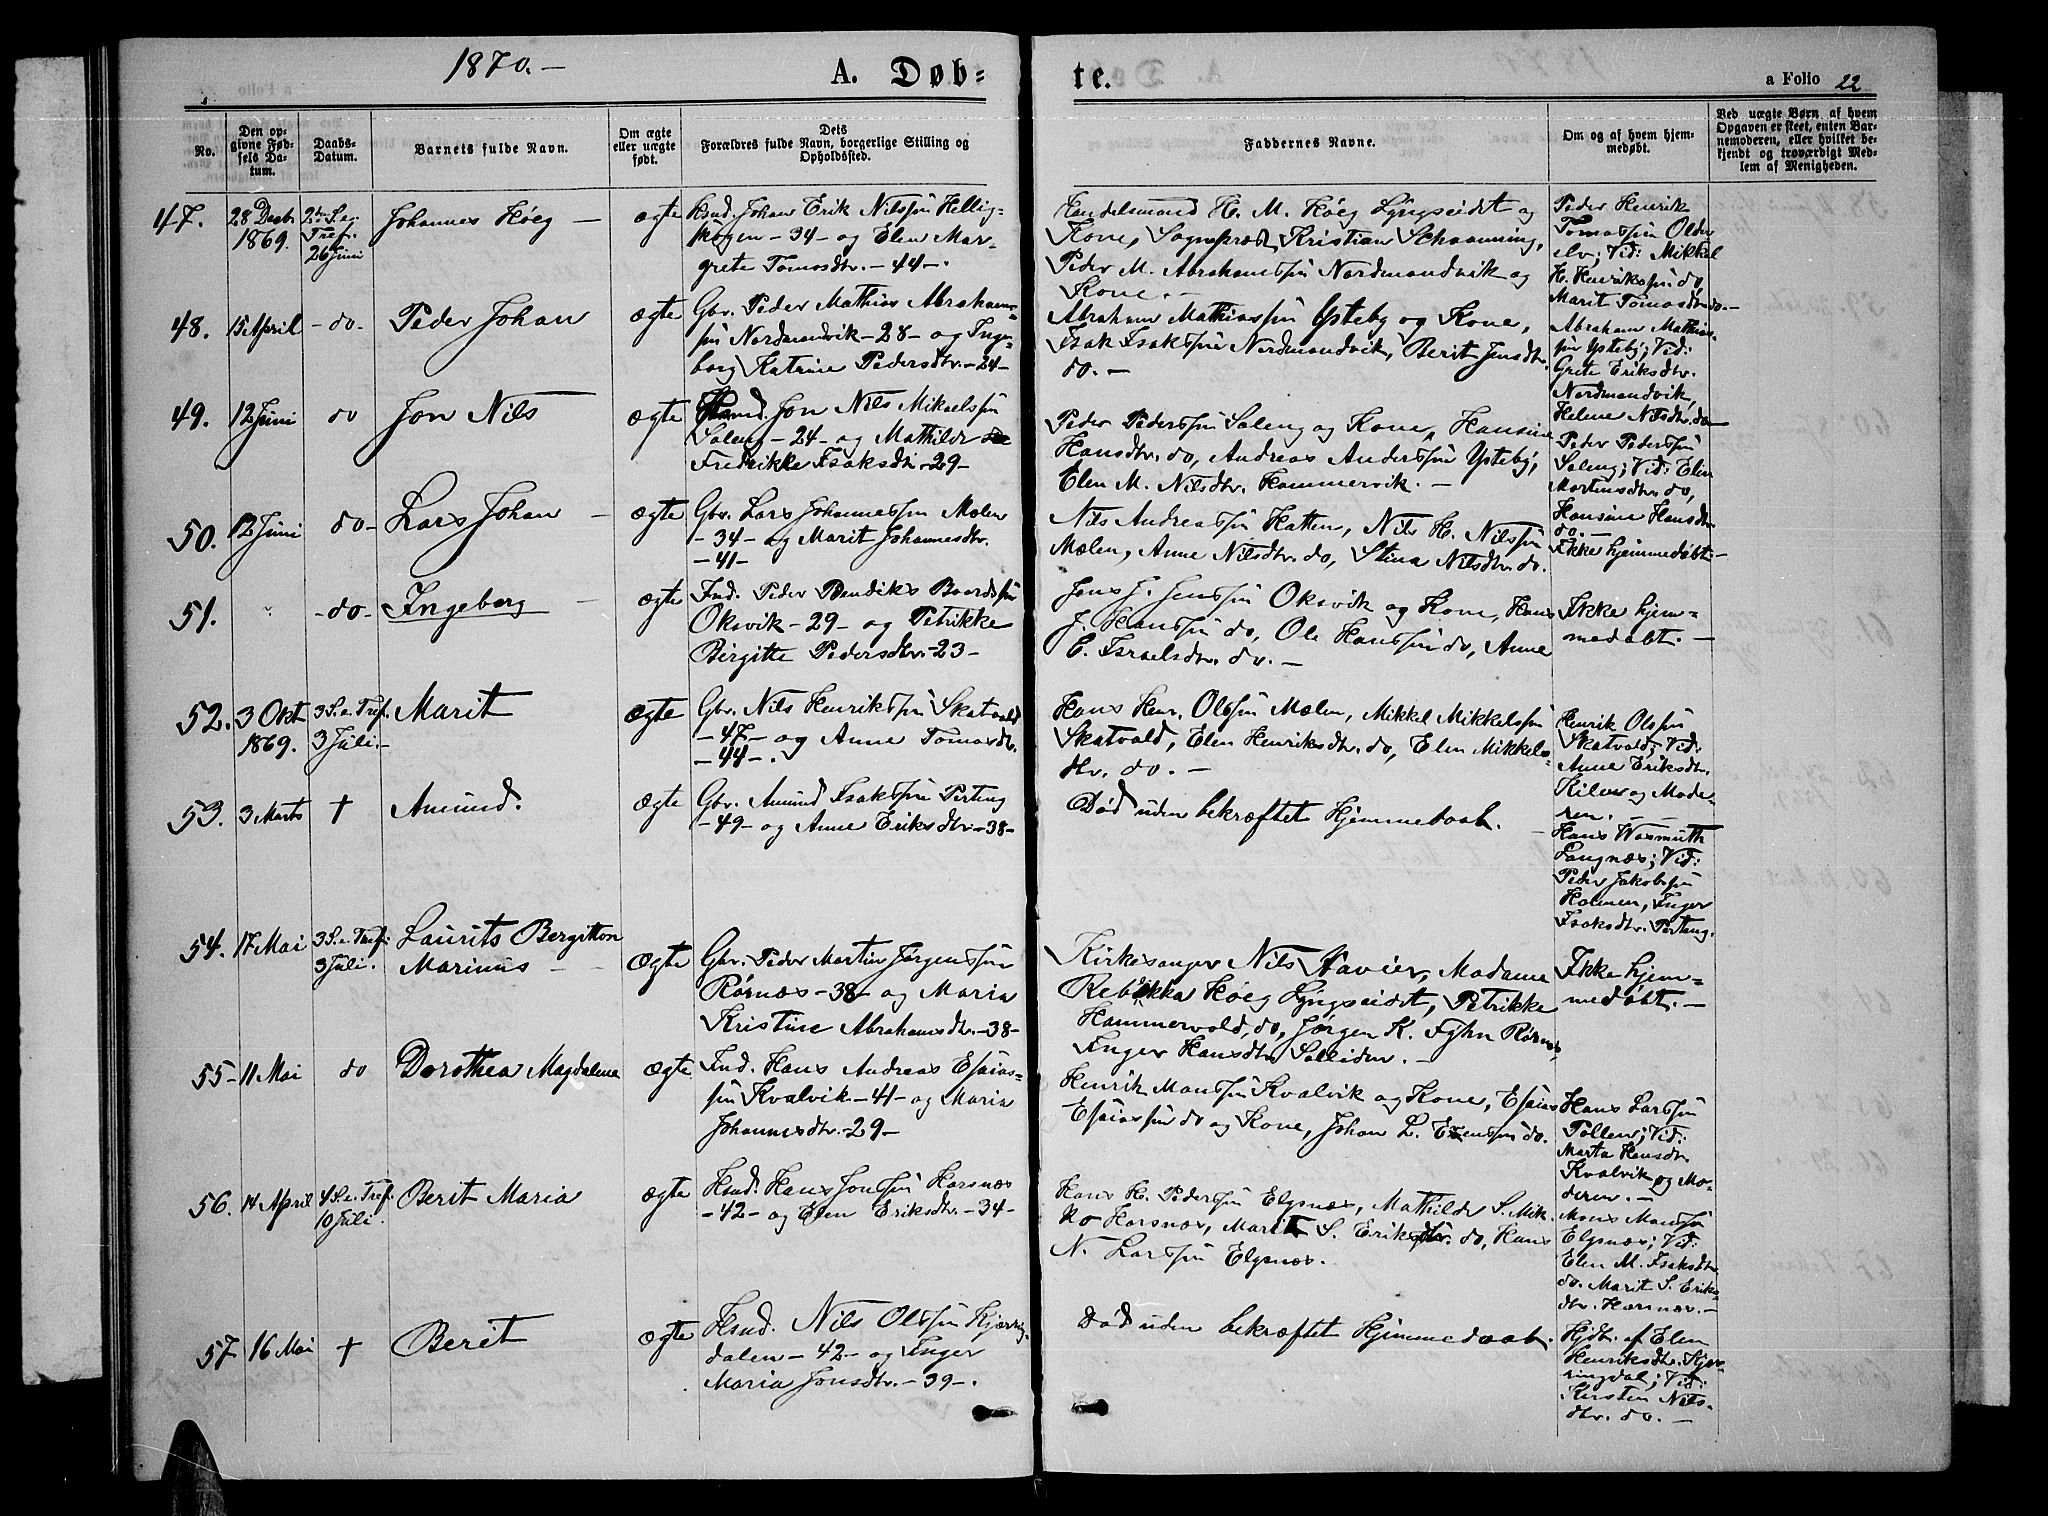 1870.—
A. Døb=
te.
a Folio 22
No.
Den op-
givne Fød-
sels Da-
tum.
Daabs-
Datum.
Barnets fulde Navn.
Om ægte
eller uægte
født.
Dets
Forældres fulde Navn, borgerlige Stilling og
Opholdssted.
Faddernes Navne.
Om og af hvem hjem-
medøbt.
Ved uægte Børn af hvem
Opgaven er skeet, enten Bar-
nemoderen, eller hvilket be-
kjendt og troværdigt Med-
lem af Menigheden.
47.
28 Decbr
1869.
2den S. e.
Tref.
26 Juni
Johannes Høeg —
ægte
Hsud. Johan Erik Nilssøn Hellig-
skogen - 34 - og Elen Mar-
grete Tomasdtr. - 44 -.
Handelsmand H. M. Høeg Lyngseidet og
Kone, Sognepræst Kristian Schaanning,
Peder M. Abrahamssøn Nordmandvik og
Kone. —
Peder Henrik
Tomassøn Older
elv; Vid: Mikkel
H. Henrikssøn do,
Marit Tomasdtr do.—
48.
15 April
- do.
Peder Johan
ægte
Gbr. Peder Mathias Abrahams-
søn Nordmandvik - 28 - og Inge-
borg Katrine Pedersdtr. - 24 -
Abraham Mathiassøn Ysteby og Kone,
Isak Isakssøn Nordmandvik, Berit Jensdtr.
do. —
Abraham Mathias-
søn Ysteby; Vid:
Grete Eriksdtr.
Nordmandvik,
Helene Nilsdtr. do—
49.
12 Juni
do
Jon Nils
ægte
Hsud. Jon Nils Mikaelssøn
Saleng - 24 - og Mathilde
Fredrikke Isaksdtr - 29 -
Peder Pederssøn Saleng og Kone, Hansine
Hansdtr. do, Andreas Anderssøn Ysteby,
Elen M. Nilsdtr. Hammervik. —
Peder Pederssøn
Saleng; Vid: Elen
Martinsdtr. do,
Hansine Hansdtr
do. —
50.
12 Juni
do -
Lars Johan —
ægte
Gbr. Lars Johannessøn Mælen
- 34 - og Marit Johannesdtr.
- 41 -
Nils Andreassøn Hatten, Nils H. Nilssøn
Mælen, Anne Nilsdtr. do, Stina Nilsdtr. do.
Ikke hjemmedøbt. —
51.
- do -
Ingeborg —
ægte
Ind. Peder Bendiks Baardssøn
Oksvik - 29 - og Petrikke
Birgitte Pedersdtr. - 23 -
Jens J. Jenssøn Oksvik og Kone, Hans
J. Hanssøn do, Ole Hanssøn do, Anne
E. Israelsdtr. do. —
Ikke hjem-
medøbt. —
52.
3 Okt
1869.
3 S. e. Tref.
3 Juli. —
Marit
ægte
Gbr. Nils Henrikssøn Skatvold
- 47 - og Anne Tomasdtr.
- 44 -.
Hans Henr. Olssøn Mælen, Mikkel Mikkelssøn
Skatvold, Elen Henriksdtr. do, Elen Mikkels-
dtr. do. —
Henrik Olssøn
Skatvold; Vid:
Anne Eriksdtr.
Kilen og Mode-
ren. —
53.
3 Marts
†
Amund.
ægte
Gbr. Amund Isakssøn Perteng
- 49 - og Anne Eriksdtr. - 38 -
Død uden bekræftet Hjemmedaab. —
Hans Wasmuth
Langnæs; Vid:
Peder Jakobssøn
Holmen, Inger
Isaksdtr. Pertang.
54.
17 Mai
3 S. e. Tref:
3 Juli.
Laurits Bergitton
Marinus —
ægte
Gbr. Peder Martin Jørgenssøn
Rørnæs - 38 - og Maria
Kristine Abrahamsdtr. - 38 -
Kirkesanger Nils Xavier, Madame
Rebekka Høeg Lyngseidet, Petrikke
Hammervold, do, Jørgen K. Fyhn Rørnæs,
Inger Hansdtr Solliden. —
Ikke hjem-
medøbt. —
55 -
11 Mai
do
Dorothea Magdalene
ægte
Ind. Hans Andreas Esaias-
søn Kvalvik - 41 - og Maria
Johannesdtr. - 29 -
Henrik Monssøn Kvalvik og Kone, Esaias
Esaiassøn do og Kone, Johan L. Evenssøn do.
Hans Larssøn
Pollen; Vid:
Marta Hansdtr.
Kvalvik og Mo-
deren. —
56.
14 April
4 S. e. Tref.
10 Juli.
Berit Maria
ægte
Hsud. Hans Jonssøn Horsnæs
- 42 - og Elen Eriksdtr. - 34 -
Hans H. Pederssøn Elgsnæs, Mathilde S. Mik-
ko Horsnæs, Marit S. Eriksdtr. do, Hans
N. Larssøn Elgsnæs.
Mons Monssøn
Elgsnæs; Vid:
Elen M. Isaksdtr.
do. Marit S. Eriks-
dtr. Horsnæs. —
57
16 Mai
†
Berit
ægte
Hsud. Nils Olssøn Kjærring-
dalen - 42 - og Inger
Maria Jonsdtr. - 39 -.
Død uden bekræftet Hjemmedaab.
Hjdt. af Elen
Henriksdtr. Kjær-
ringdal; Vid:
Kirsten Nils-
dtr. do. —